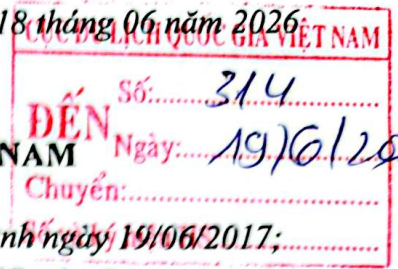 18 tháng 06 năm 2026
CỤC DU LỊCH QUỐC GIA VIỆT NAM
ĐẾN
Số: 314
Ngày: 19/6/26
NAM
Chuyển:
nh ngày 19/06/2017;